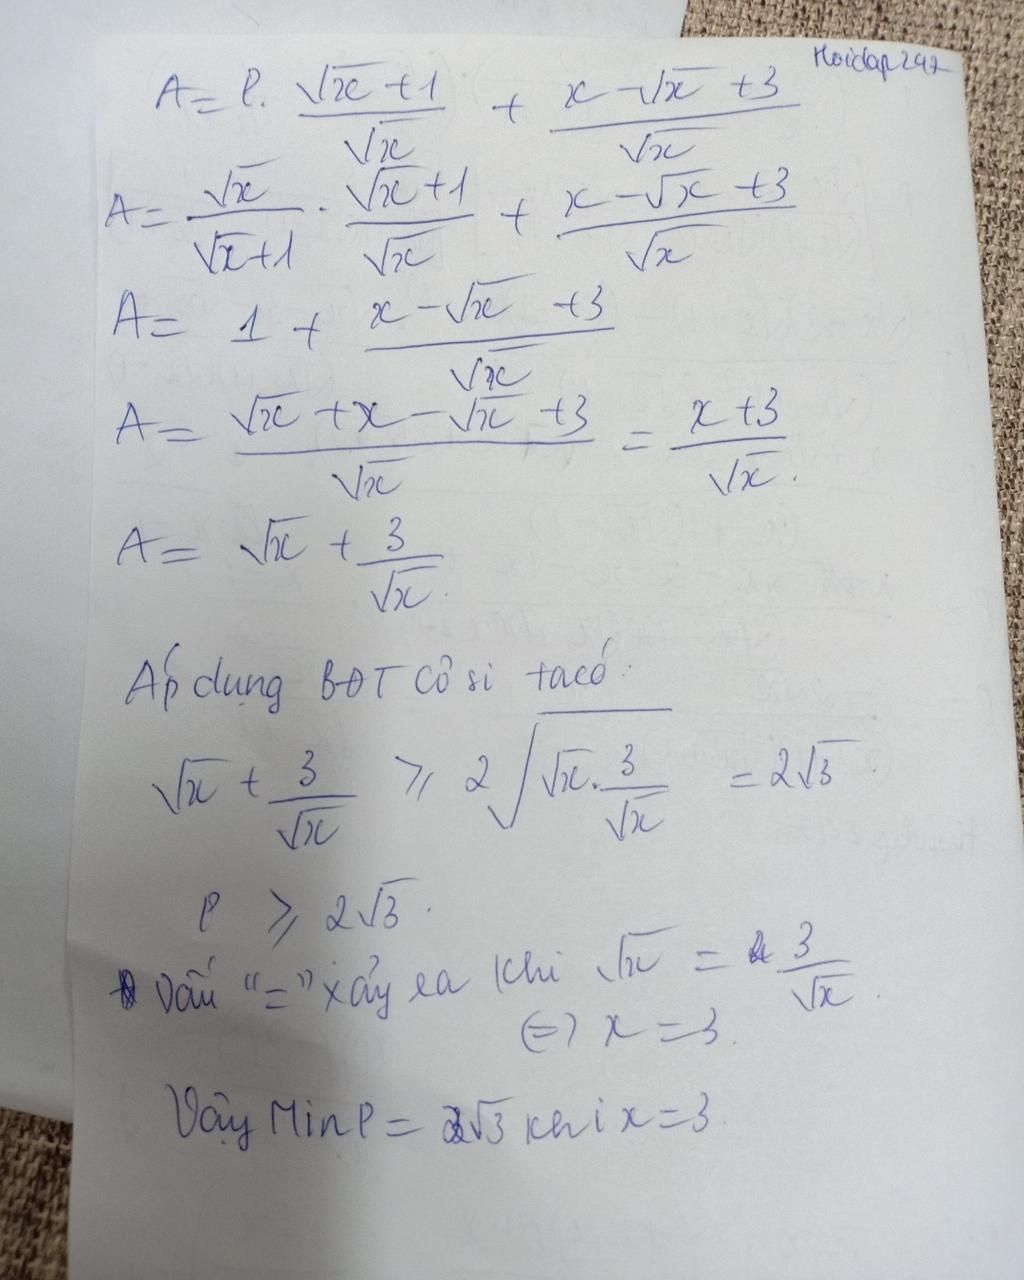 Hoidap247
A = P. (√x + 1)/√x + (x - √x + 3)/√x
A = √x/(√x + 1) . (√x + 1)/√x + (x - √x + 3)/√x
A = 1 + (x - √x + 3)/√x
A = (√x + x - √x + 3)/√x = (x + 3)/√x.
A = √x + 3/√x.
Áp dụng BĐT Cô si ta có:
√x + 3/√x ≥ 2√(√x . 3/√x) = 2√3.
P ≥ 2√3.
Dấu "=" xảy ra khi √x = 3/√x.
(=) x = 3.
Vậy Min P = 2√3 khi x = 3